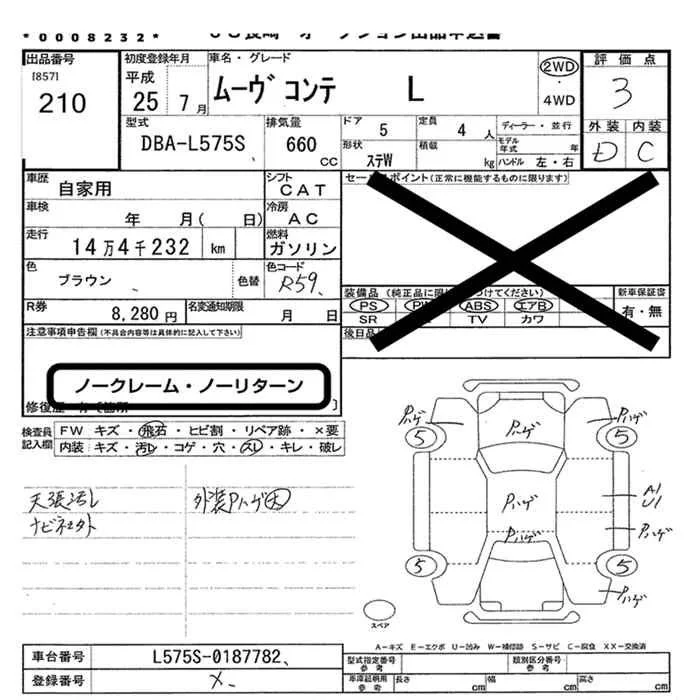 *0008232*
出品番号
[857]
210
初度登録年月
平成
25 7月
車名・グレード
ムーヴ コンテ L
2WD
・
4WD
評価点
3
外装 内装
D C
型式
DBA-L575S
排気量
660 cc
ドア 5
定員 4 人
形状 ステW
積載 kg
ディーラー・並行
モデル年式 年
ハンドル 左・右
車歴
自家用
シフト
CAT
車検
年 月( 日)
冷房
AC
走行
14万4千232 km
燃料
ガソリン
色
ブラウン
色替
色コード
R59
R券
8,280円
名変通知期限
月 日
セールスポイント(正常に機能するものに限ります)
装備品 (純正品に限り つけてください)
PS PW ABS エアB
SR TV カワ
新車保証書
有・無
後日品
注意事項申告欄(不具合内容等は具体的に記入して下さい)
ノークレーム・ノーリターン
検査員記入欄
FW キズ・飛石・ヒビ割・リペア跡・×要
内装 キズ・汚レ・コゲ・穴・スレ・キレ・破レ
天張汚レ
外装Pハゲ大
Pハゲ
Pハゲ
Pハゲ
5
5
Pハゲ
A1
U1
Pハゲ
Pハゲ
5
5
Pハゲ
スペア
A-キズ E-エクボ U-凹み W-補修跡 S-サビ C-腐食 XX-交換済
車台番号
L575S-0187782
登録番号
×
型式指定番号
参考
類別区分番号
参考
車庫証明用
参考
長さ cm
幅 cm
高さ cm